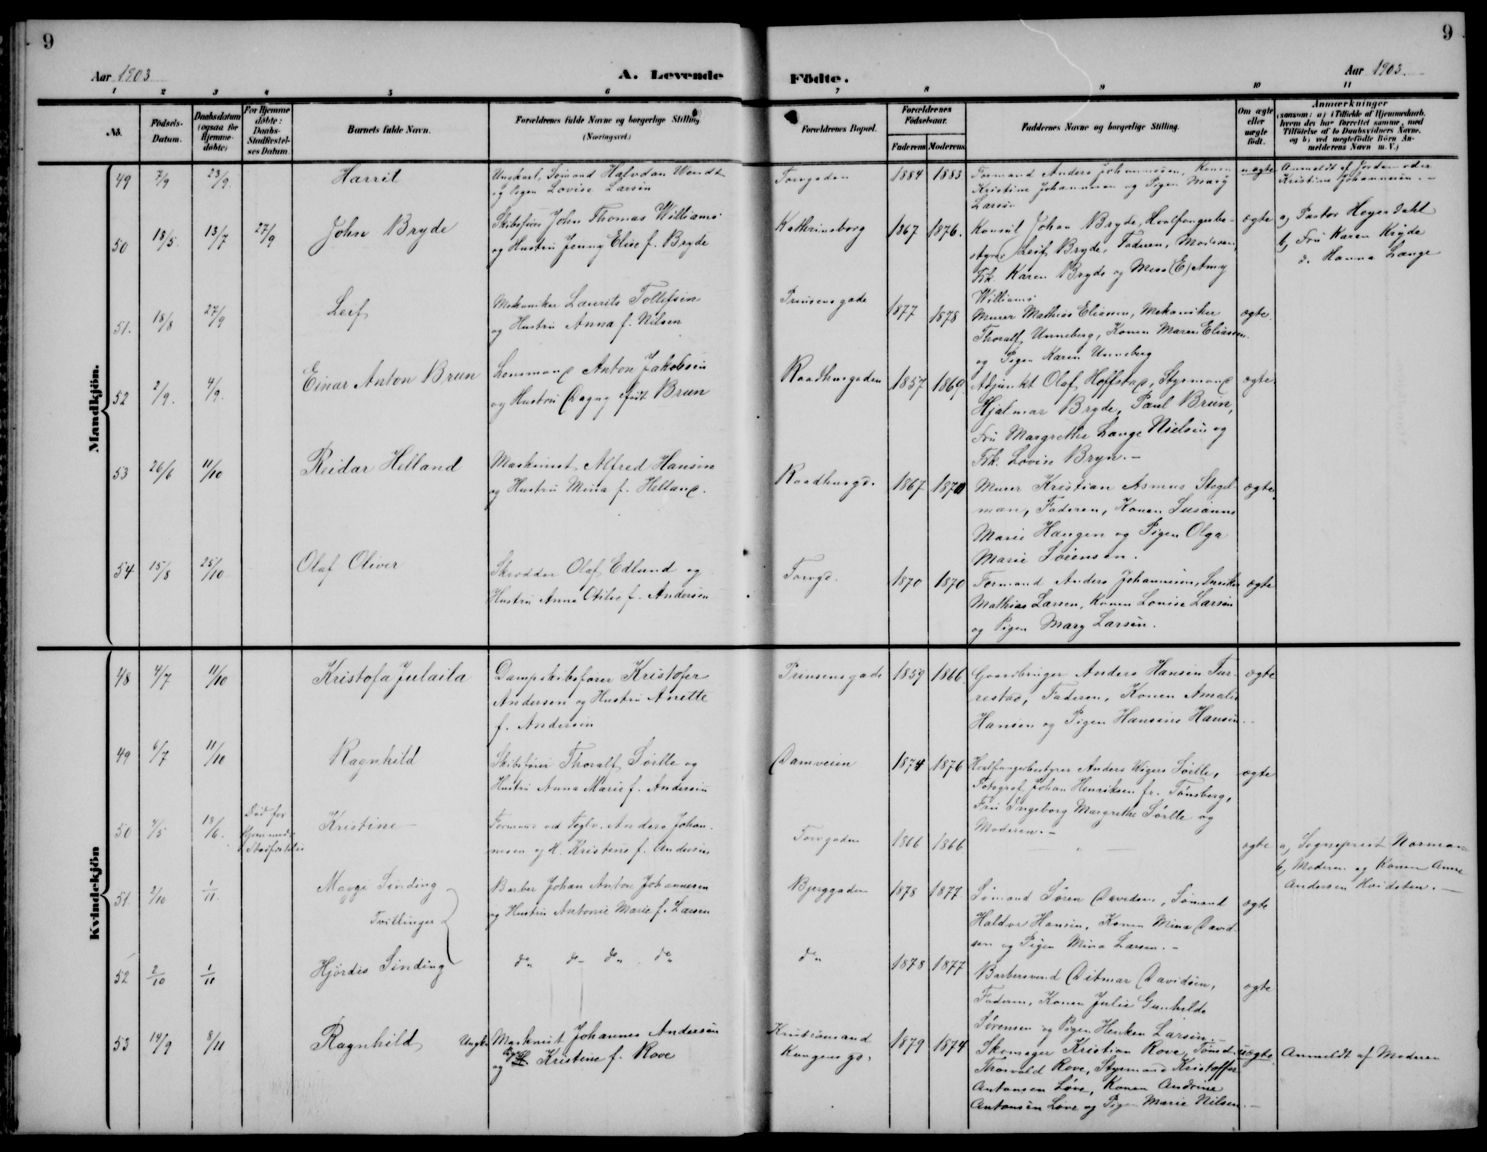 9
Aar 1903
A. Levende
Födte.
Aar 1903.
9
1 2 3 4 5 6 7 8 9 10 11
No.
Födsels-Datum.
Daabsdatum (ogsaa for Hjemmedöbte)
For Hjemmedöbte: Daabs-Stadfæstelses Datum.
Barnets fulde Navn.
Forældrenes fulde Navne og borgerlige Stilling (Næringsvei.)
Forældrenes Bopæl.
Forældrenes Födselsaar.
Faderens
Moderens
Faddernes Navne og borgerlige Stilling.
Om ægte eller uægte födt.
Anmærkninger
Mandkjön.
49 7/9 23/9 Harrit
Ungkarl, Sömand Halvdan Wendt
og Pigen Lovise Larsen
Torvgaden 1884 1883
Formand Anders Johannesen, Konen
Kristine Johannesen og Pigen Mary
Larsen
uægte
Anmeldt af Jordmoder
Kristine Johannesen. -
50 18/5. 13/7 27/9 John Bryde
Skibsförer John Thomas Williams
og Hustru Jenny Elise f. Bryde
Kathrinsborg 1867 1876.
Konsul Johan Bryde, Hvalfangerbe-
styrer Leif Bryde, Faderen, Moderen,
Frk. Karen Bryde og Miss (E) Amy
Williams
ægte
a, Pastor Hoyer Dahl
b, Fru Karen Bryde
o. Hanna Lange
51. 18/8 27/9 Leif
Mekaniker Laurits Tollefsen
og Hustru Anna f. Nilsen
Prinsensgade 1877 1878
Murer Mathias Eliassen, Mekaniker
Thoralf Unneberg, Konen Maren Eliassen
og Pigen Karen Unneberg
ægte.
52 2/9. 4/9. Einar Anton Brun
Lensmand Anton Jakobsen
og Hustru Dagny födt Brun
Raadhusgaden 1857 1869.
Adjunkt Olaf Hoffstad, Styrmand
Hjalmar Bryde, Paul Brun,
Fru Margrethe Lange Nielsen og
Frk. Lovise Bryn. -
ægte
53 26/6 11/10 Reidar Helland
Maskinist Alfred Hansen
og Hustru Mina f. Helland.
Raadhusgd. 1867 1870
Murer Kristian Asmus Stegel-
man, Faderen, Konen Susanne
Marie Haugen og Pigen Olga
Marie Sörensen.
ægte
54 15/8 25/10 Olaf Oliver
Skrædder Olaf Edlund og
Hustru Anna Otilie f. Andersen
Torvgd. 1870 1870
Formand Anders Johannesen, Snedker
Mathias Larsen, Konen Lovise Larsen
og Pigen Mary Larsen.
ægte
Kvindekjön
48 4/7 11/10 Kristofa Julaila
Dampskibsförer Kristofer
Andersen og Hustru Anette
f. Andersen
Prinsensgade 1859 1866
Gaardbruger Anders Hansen Fur-
restad, Faderen, Konen Amalie
Hansen og Pigen Hansine Hansen.
ægte
49 6/7 11/10 Ragnhild
Skibsförer Thoralf Sörlle og
Hustru Anna Marie f. Andersen
Damveien 1874 1876
Hvalfangerbestyrer Anders Wiger Sörlle,
Fotograf Johan Henriksen fr. Tönsberg,
Fru Ingeborg Margrethe Sörlle og
Moderen. -
ægte
50 7/5 13/6. Död för
Kristine
Formand ved Teglv. Anders Johan-
nesen og H. Kristine f. Andersen
Torvgaden 1866 1866
ægte
a, Sogneprest Norman
b, Moderen og Konen Anne
Andersen Hvidsten. -
51 2/10 1/11 Maggi Sinding
Tvillinger
Barber Johan Anton Johannesen
og Hustru Antonie Marie f. Larsen
Bjerggaden 1878 1877
Sömand Sören Davidsen, Sömand
Haldor Hansen, Konen Mina David-
sen og Pigen Mina Larsen. -
ægte
52 2/10 1/11 Hjördis Sinding
do do do do
do 1878 1877
Barbersvend Ditmar Davidsen,
Faderen, Konen Julie Gunhilde
Sörensen og Pigen Larsen. -
ægte
53 14/9 8/11 Ragnhild
Ungk. Maskinist Johannes Andersen
og Kristine f. Rove
Kristiansand
Kongensgd. 1879 1874
Skomager Kristian Rove,
Thorvald Rove, Styrmand Kristoffer
Antonsen Löve, Konen Andrine
Antonsen Löve og Pigen Marie Nilsen. -
uægte
Anmeldt af Moderen